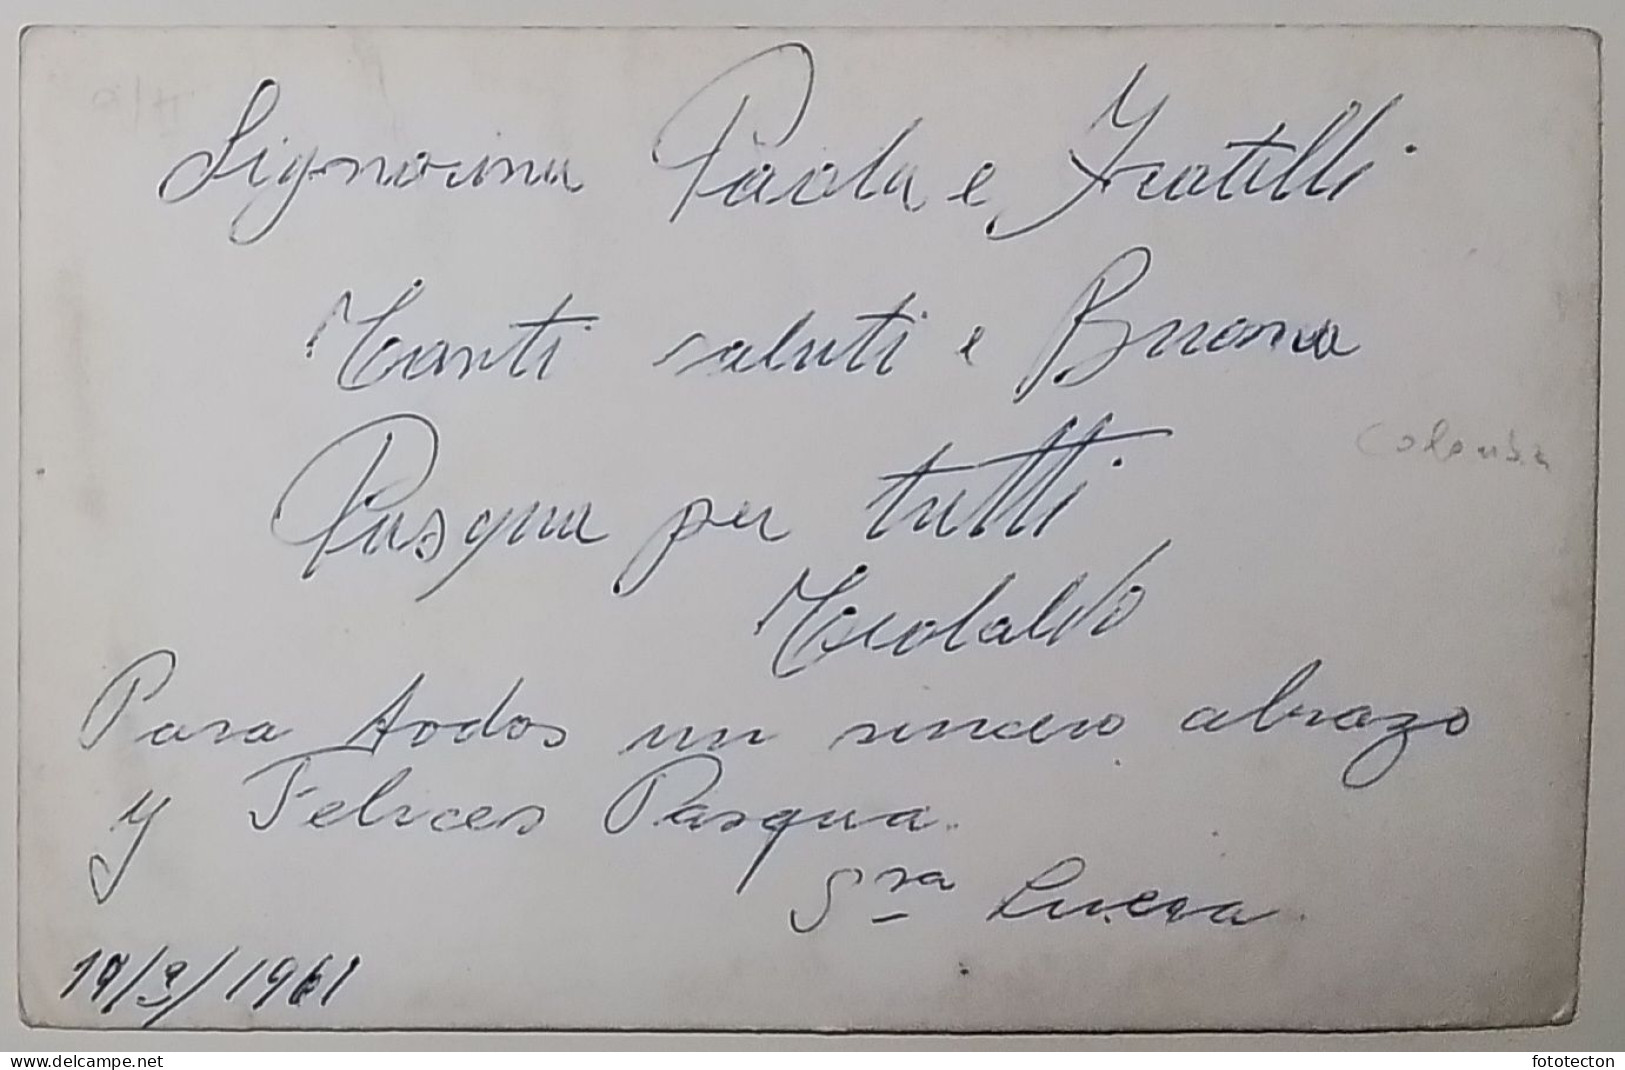 Signorina Paola e Fratelli
Tanti saluti e Buona
Pasqua per tutti
Para todos un sincero abrazo
y Felices Pasqua.
Sra Lucia
19/3/1961
www.delcampe.net
fototecton